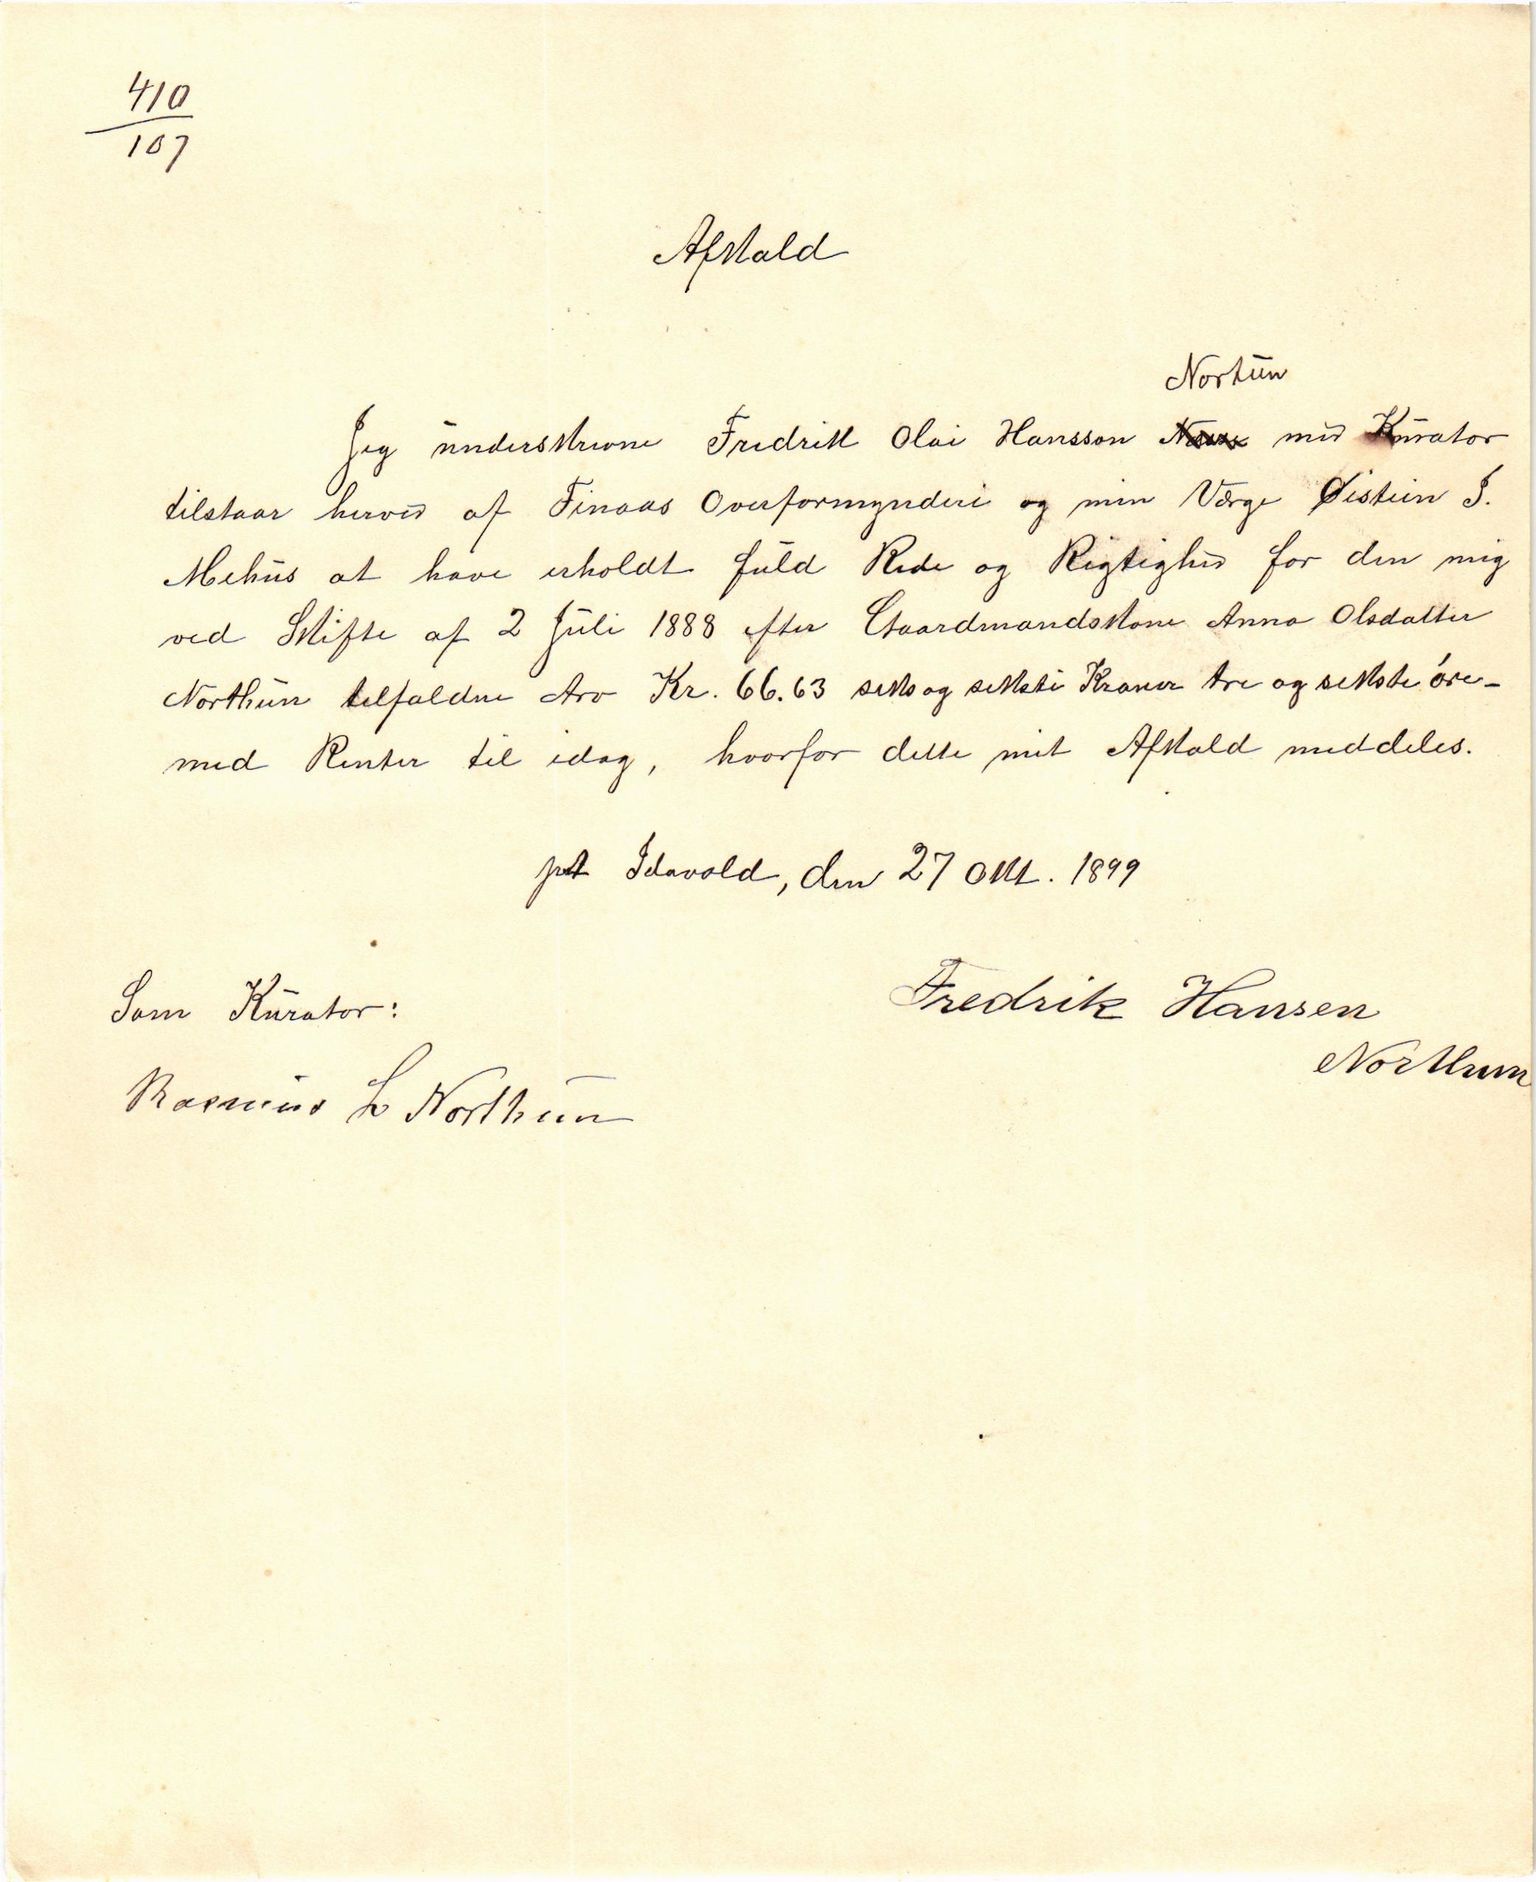 410
107
Afkald
Nortun
Jeg underskrevne Fredrik Olai Hansson med Kurator
tilstaar herved af Finaas Overformynderi og min Værge Øistein J.
Mehus at have erholdt fuld Rede og Rigtighed for den mig
ved Skifte af 2 Juli 1888 efter Gaardmandskone Anna Olsdatter
Northun tilfaldne Arv Kr. 66.63 seks og seksti Kroner tre og sekste öre-
med Renter til idag, hvorfor dette mit Afkald meddeles.
pt Idavold, den 27 Okt. 1899
Som Kurator:
Fredrik Hansen
Northun
Rasmus L Northun